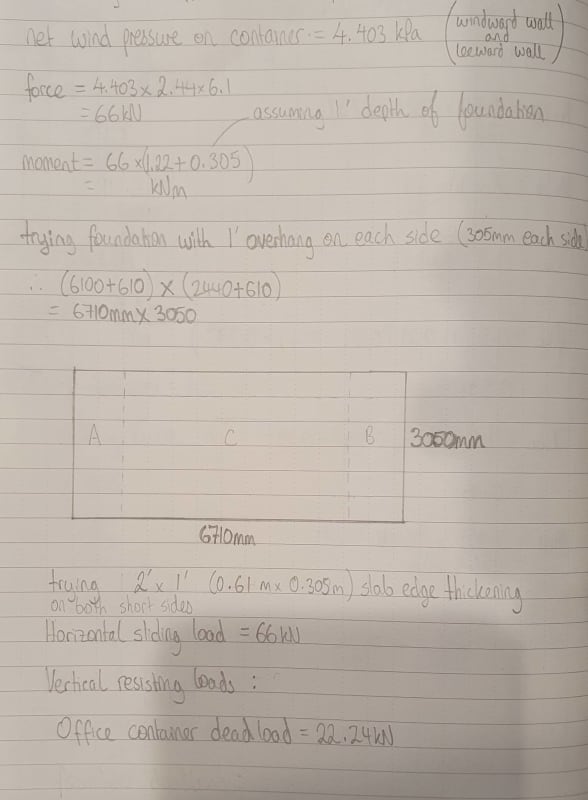 net wind pressure on container = 4.403 kPa (windward wall
and
leeward wall)
force = 4.403 x 2.44 x 6.1
= 66kN
assuming 1' depth of foundation
moment = 66 x (1.22 + 0.305)
= kNm
trying foundation with 1' overhang on each side (305mm each side)
∴ (6100+610) x (2440+610)
= 6710mm x 3050
A C B 3050mm
6710mm
trying 2' x 1' (0.61 m x 0.305m) slab edge thickening
on both short sides
Horizontal sliding load = 66kN
Vertical resisting loads :
Office container dead load = 22.24kN